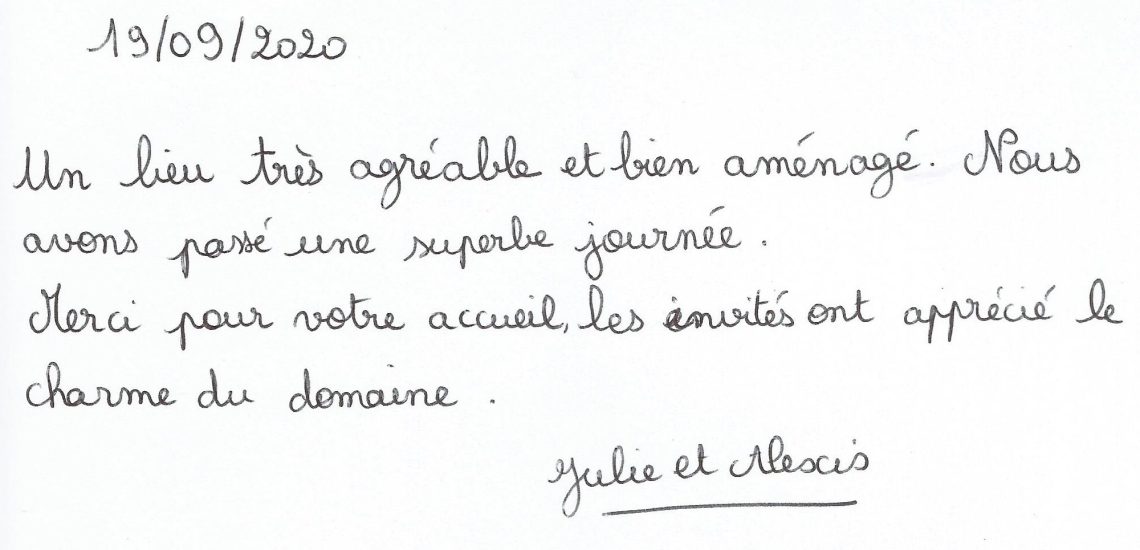 19/09/2020
Un lieu très agréable et bien aménagé. Nous
avons passé une superbe journée.
Merci pour votre accueil, les invités ont apprécié le
charme du domaine.
Julie et Alexis